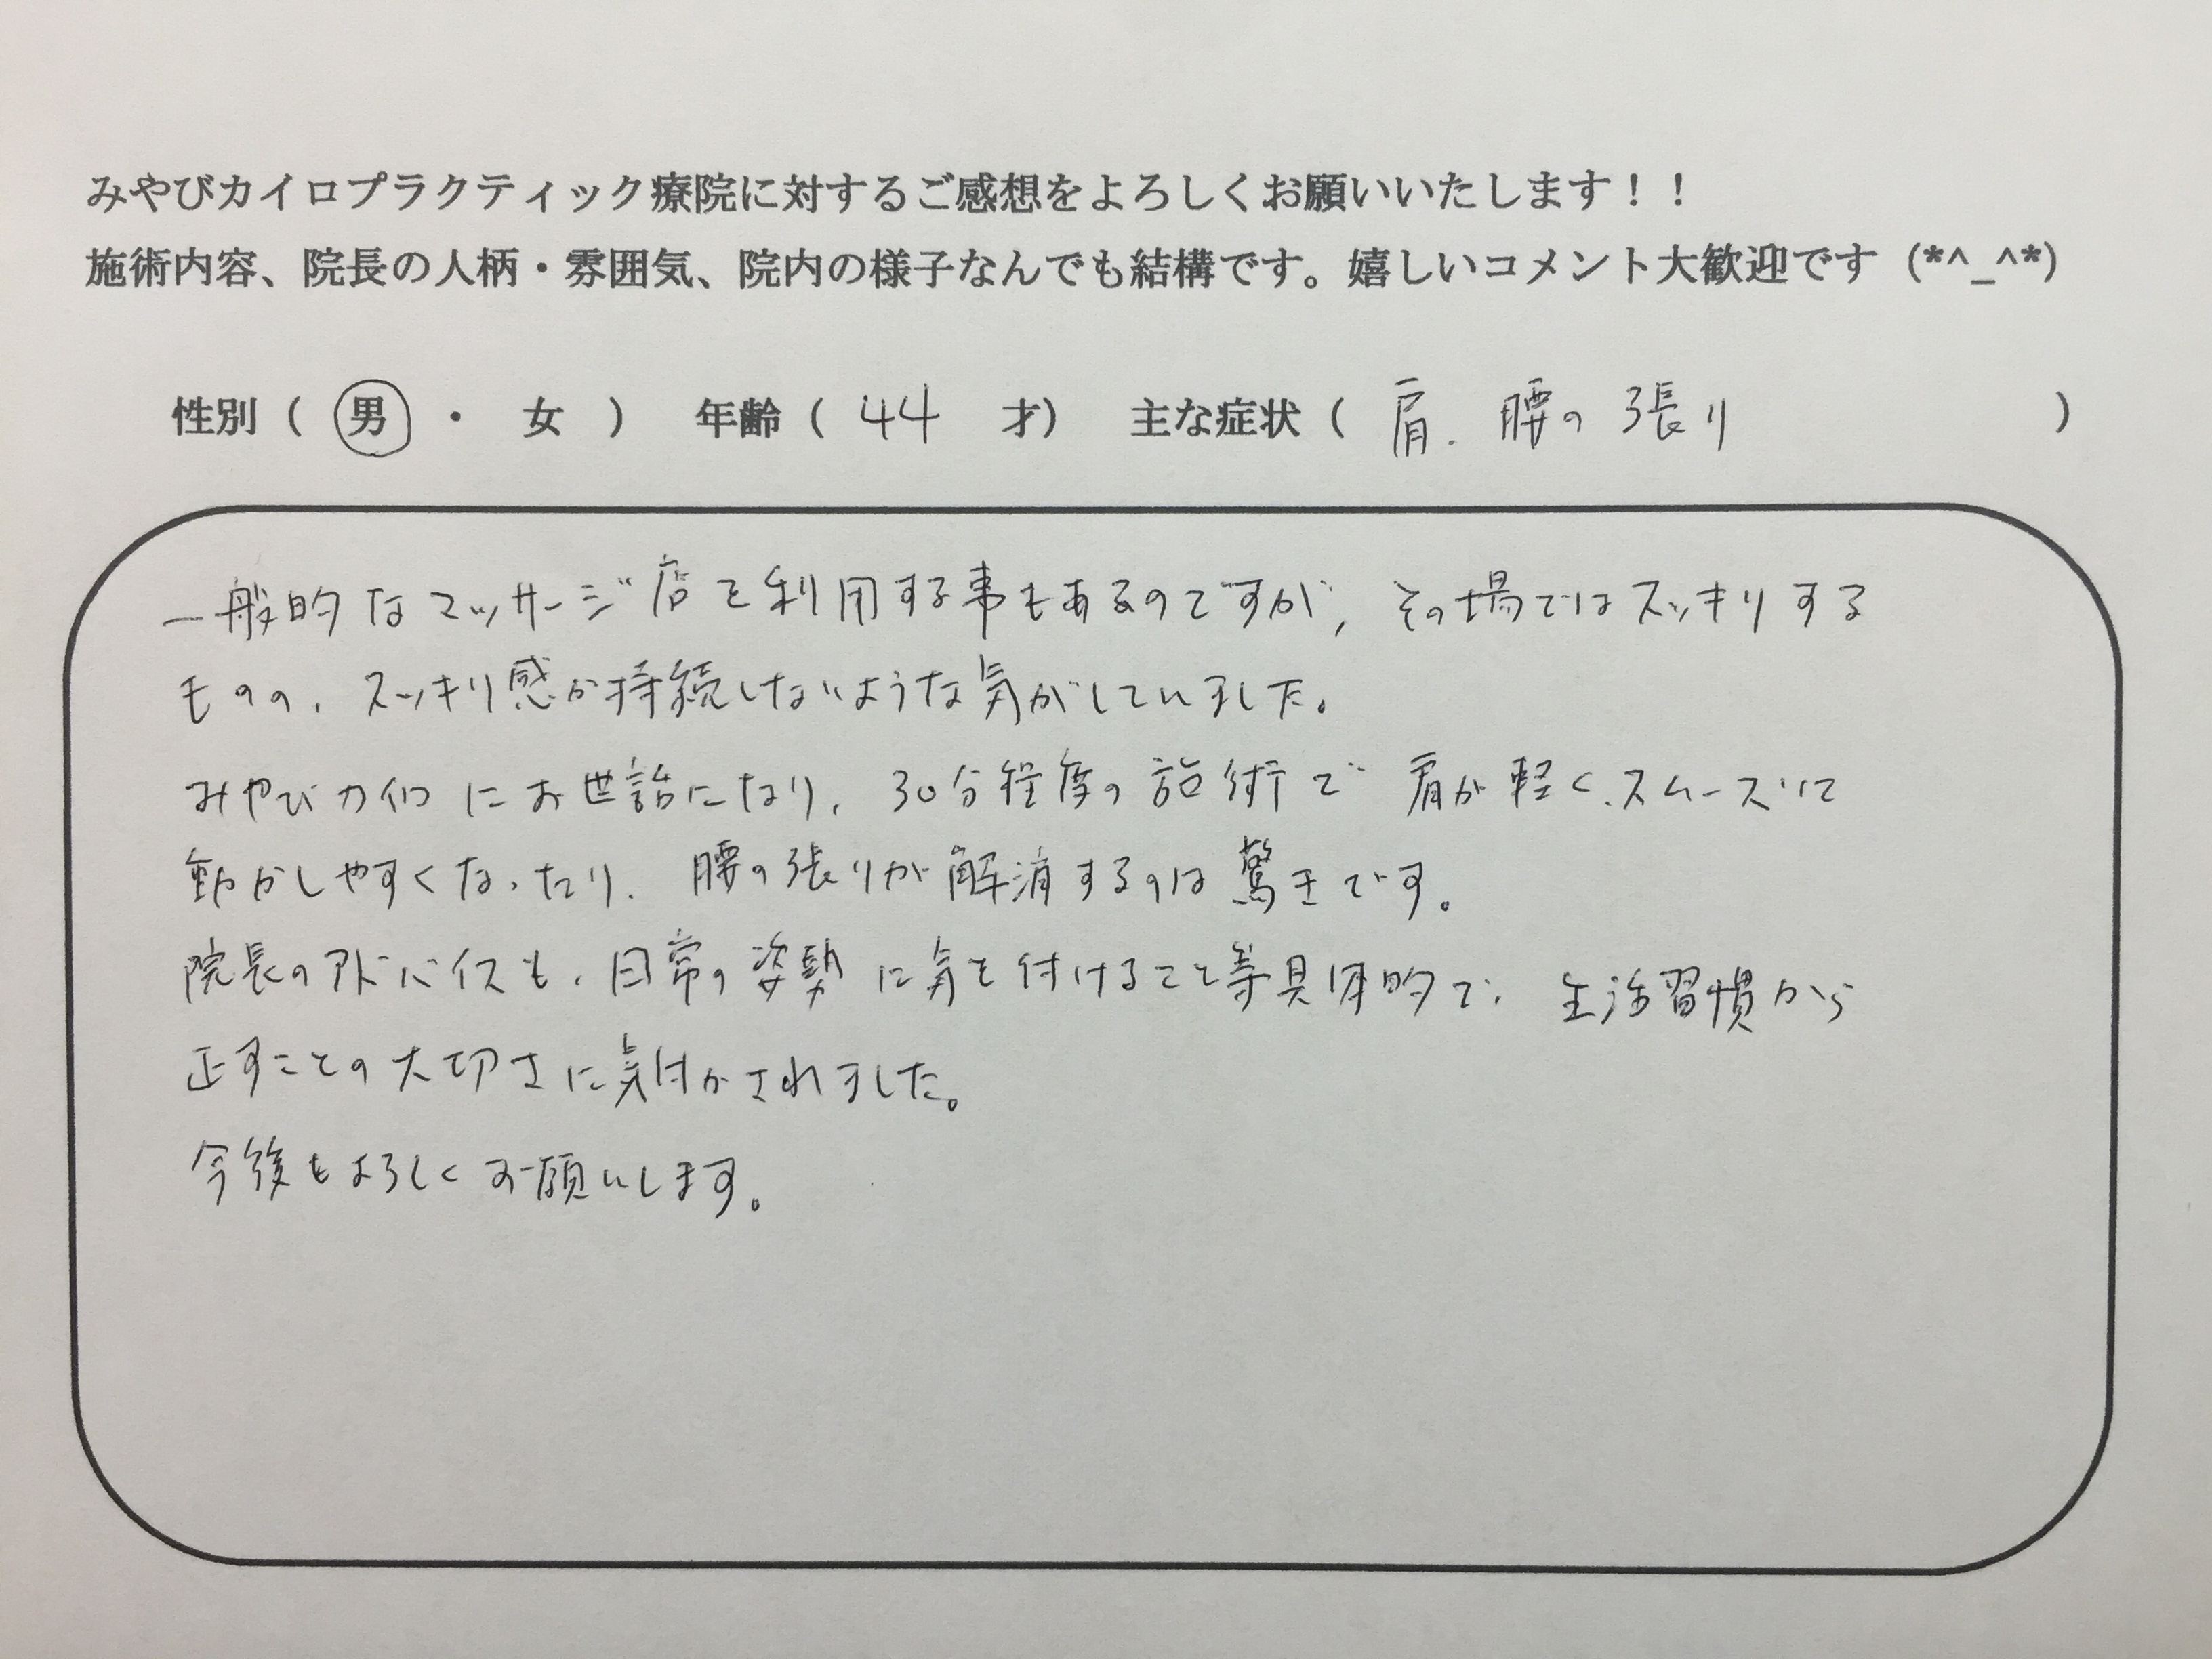 みやびカイロプラクティック療院に対するご感想をよろしくお願いいたします！！
施術内容、院長の人柄・雰囲気、院内の様子なんでも結構です。嬉しいコメント大歓迎です（*^_^*）
性別（ 男 ・ 女 ） 年齢（ 44 才） 主な症状（ 肩、腰の張り ）
一般的なマッサージ店を利用する事もあるのですが、その場ではスッキリする
ものの、スッキリ感が持続しないような気がしていました。
みやびカイロにお世話になり、30分程度の施術で肩が軽く、スムーズに
動かしやすくなったり、腰の張りが解消するのは驚きです。
院長のアドバイスも、日常の姿勢に気を付けること等具体的で、生活習慣から
正すことの大切さに気付かされました。
今後もよろしくお願いします。